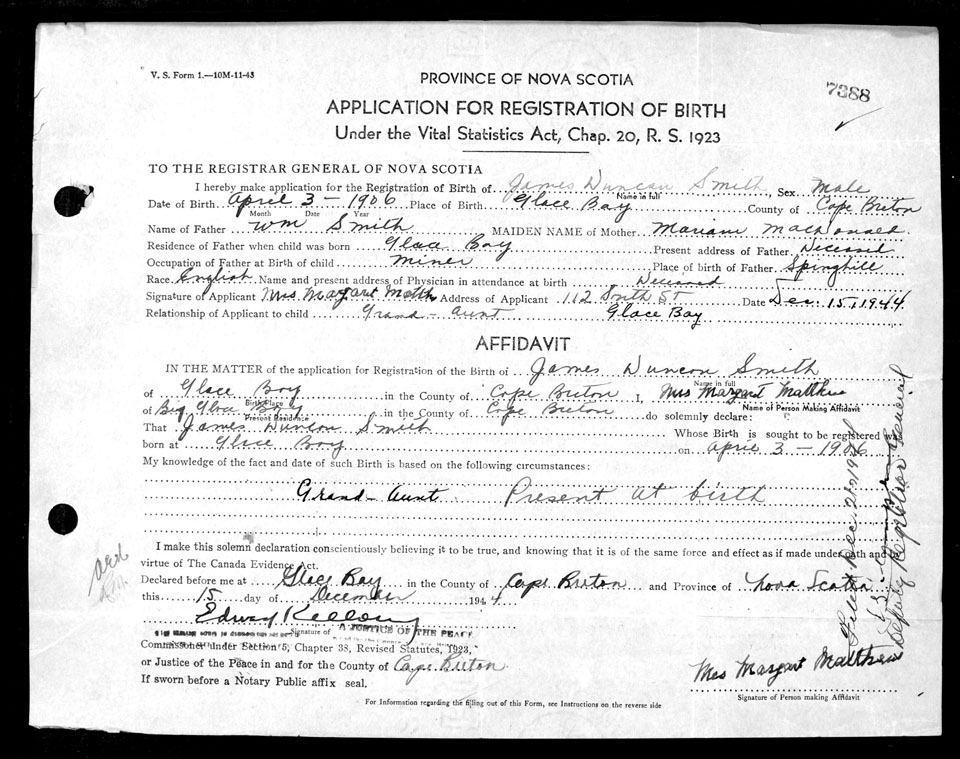 V. S. Form 1.—10M-11-43
PROVINCE OF NOVA SCOTIA
7388
APPLICATION FOR REGISTRATION OF BIRTH
Under the Vital Statistics Act, Chap. 20, R. S. 1923
TO THE REGISTRAR GENERAL OF NOVA SCOTIA
I hereby make application for the Registration of Birth of James Duncan Smith Sex Male
Name in full
Date of Birth April 3 - 1906 Place of Birth Glace Bay County of Cape Breton
Month Date Year
Name of Father Wm Smith MAIDEN NAME of Mother Mariam MacDonald
Residence of Father when child was born Glace Bay Present address of Father Deceased
Occupation of Father at Birth of child miner Place of birth of Father Springhill
Race English Name and present address of Physician in attendance at birth Deceased
Signature of Applicant Mrs Margart Matth Address of Applicant 112 Smith St Date Dec. 15, 1944
Relationship of Applicant to child Grand-Aunt Glace Bay
AFFIDAVIT
IN THE MATTER of the application for Registration of the Birth of James Duncan Smith
Name in full
of Glace Bay in the County of Cape Breton I, Mrs Margart Matthew
Birth Place
Name of Person Making Affidavit
of Glace Bay in the County of Cape Breton do solemnly declare:
Present Residence
That James Duncan Smith Whose Birth is sought to be registered was
born at Glace Bay on April 3 - 1906
My knowledge of the fact and date of such Birth is based on the following circumstances:
Grand-Aunt Present at birth
I make this solemn declaration conscientiously believing it to be true, and knowing that it is of the same force and effect as if made under oath and
virtue of The Canada Evidence Act.
Declared before me at Glace Bay in the County of Cape Breton and Province of Nova Scotia
this 15 day of December 1944
Signature of
A JUSTICE OF THE PEACE
Commissioner under Section 5, Chapter 38, Revised Statutes, 1923,
or Justice of the Peace in and for the County of Cape Breton
If sworn before a Notary Public affix seal.
Mrs Margart Matthew
Signature of Person making Affidavit
For Information regarding the filling out of this Form, see Instructions on the reverse side
Deputy Registrar General